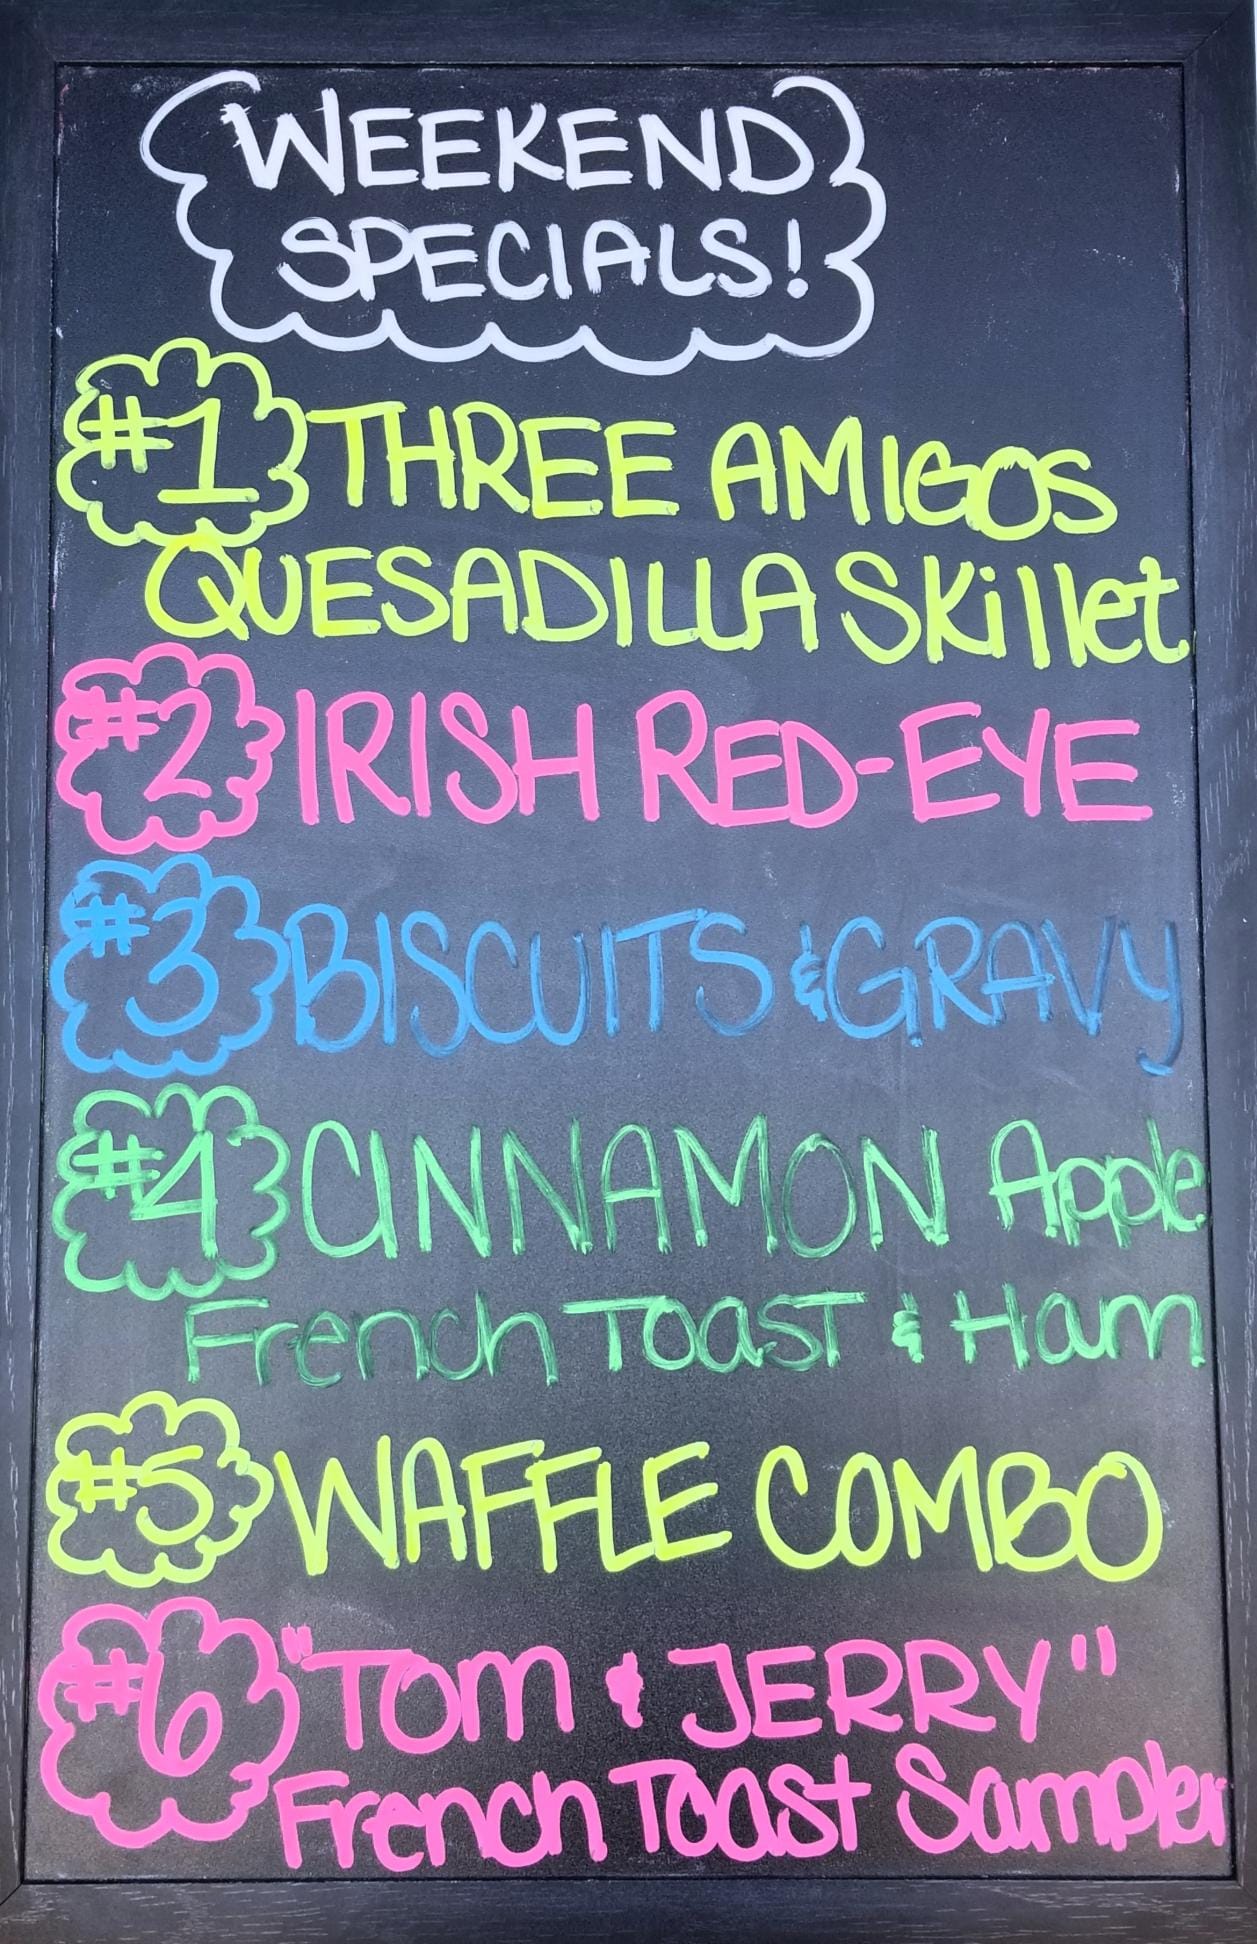 WEEKEND
SPECIALS!
#1 THREE AMIGOS
QUESADILLA Skillet
#2 IRISH RED-EYE
#3 BISCUITS & GRAVY
#4 CINNAMON Apple
French Toast & Ham
#5 WAFFLE COMBO
#6 "TOM & JERRY"
French Toast Sampler